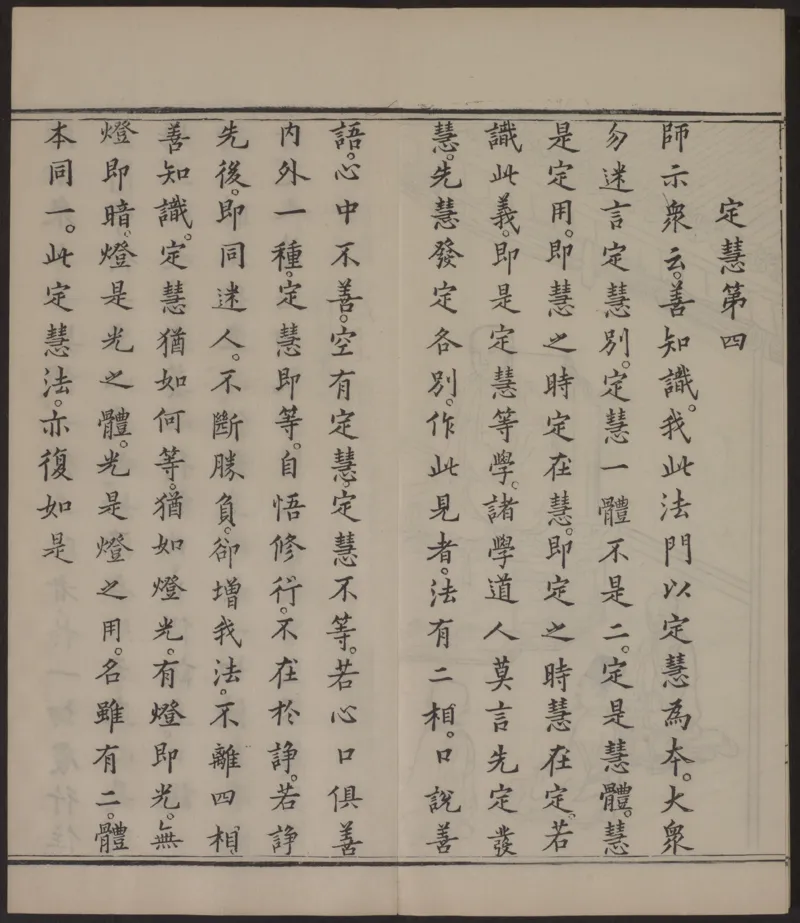 定慧第四
師示衆云。善知識。我此法門以定慧為本。大衆
勿迷言定慧別。定慧一體不是二。定是慧體。慧
是定用。即慧之時定在慧。即定之時慧在定。若
識此義。即是定慧等學。諸學道人莫言先定發
慧。先慧發定各別。作此見者。法有二相。口說善
語。心中不善。空有定慧。定慧不等。若心口俱善
內外一種。定慧即等。自悟修行。不在於諍。若諍
先後。即同迷人。不斷勝負。卻增我法。不離四相
善知識。定慧猶如何等。猶如燈光。有燈即光。無
燈即暗。燈是光之體。光是燈之用。名雖有二。體
本同一。此定慧法。亦復如是